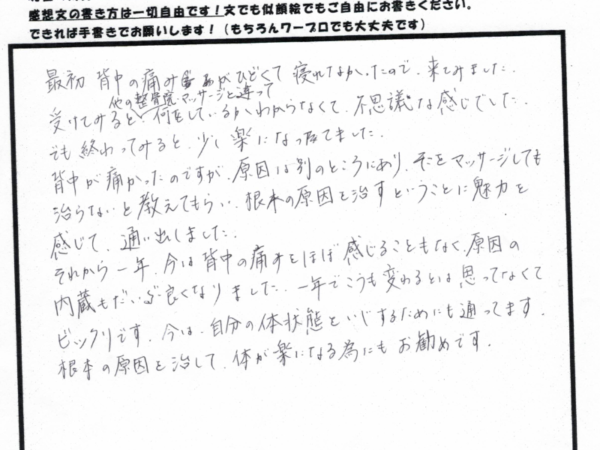 感想文の書き方は一切自由です！文でも似顔絵でもご自由にお書きください。
できれば手書きでお願いします！（もちろんワープロでも大丈夫です）
最初 背中の痛みがひどくて 寝れなかったので、来てみました。
他の整骨院マッサージと違って
受けてみると、何をしているかわからなくて、不思議な感じでした。
でも終わってみると、少し楽になってました。
背中が痛かったのですが、原因は別のところにあり、そこをマッサージしても
治らないと教えてもらい、根本の原因を治すということに魅力を
感じて、通い出しました。
それから一年、今は背中の痛みをほぼ感じることもなく、原因の
内蔵もだいぶ良くなりました。一年でこうも変わるとは思ってなくて
ビックリです。今は、自分の体状態といじするためにも通ってます。
根本の原因を治して、体が楽になる為にもお勧めです。